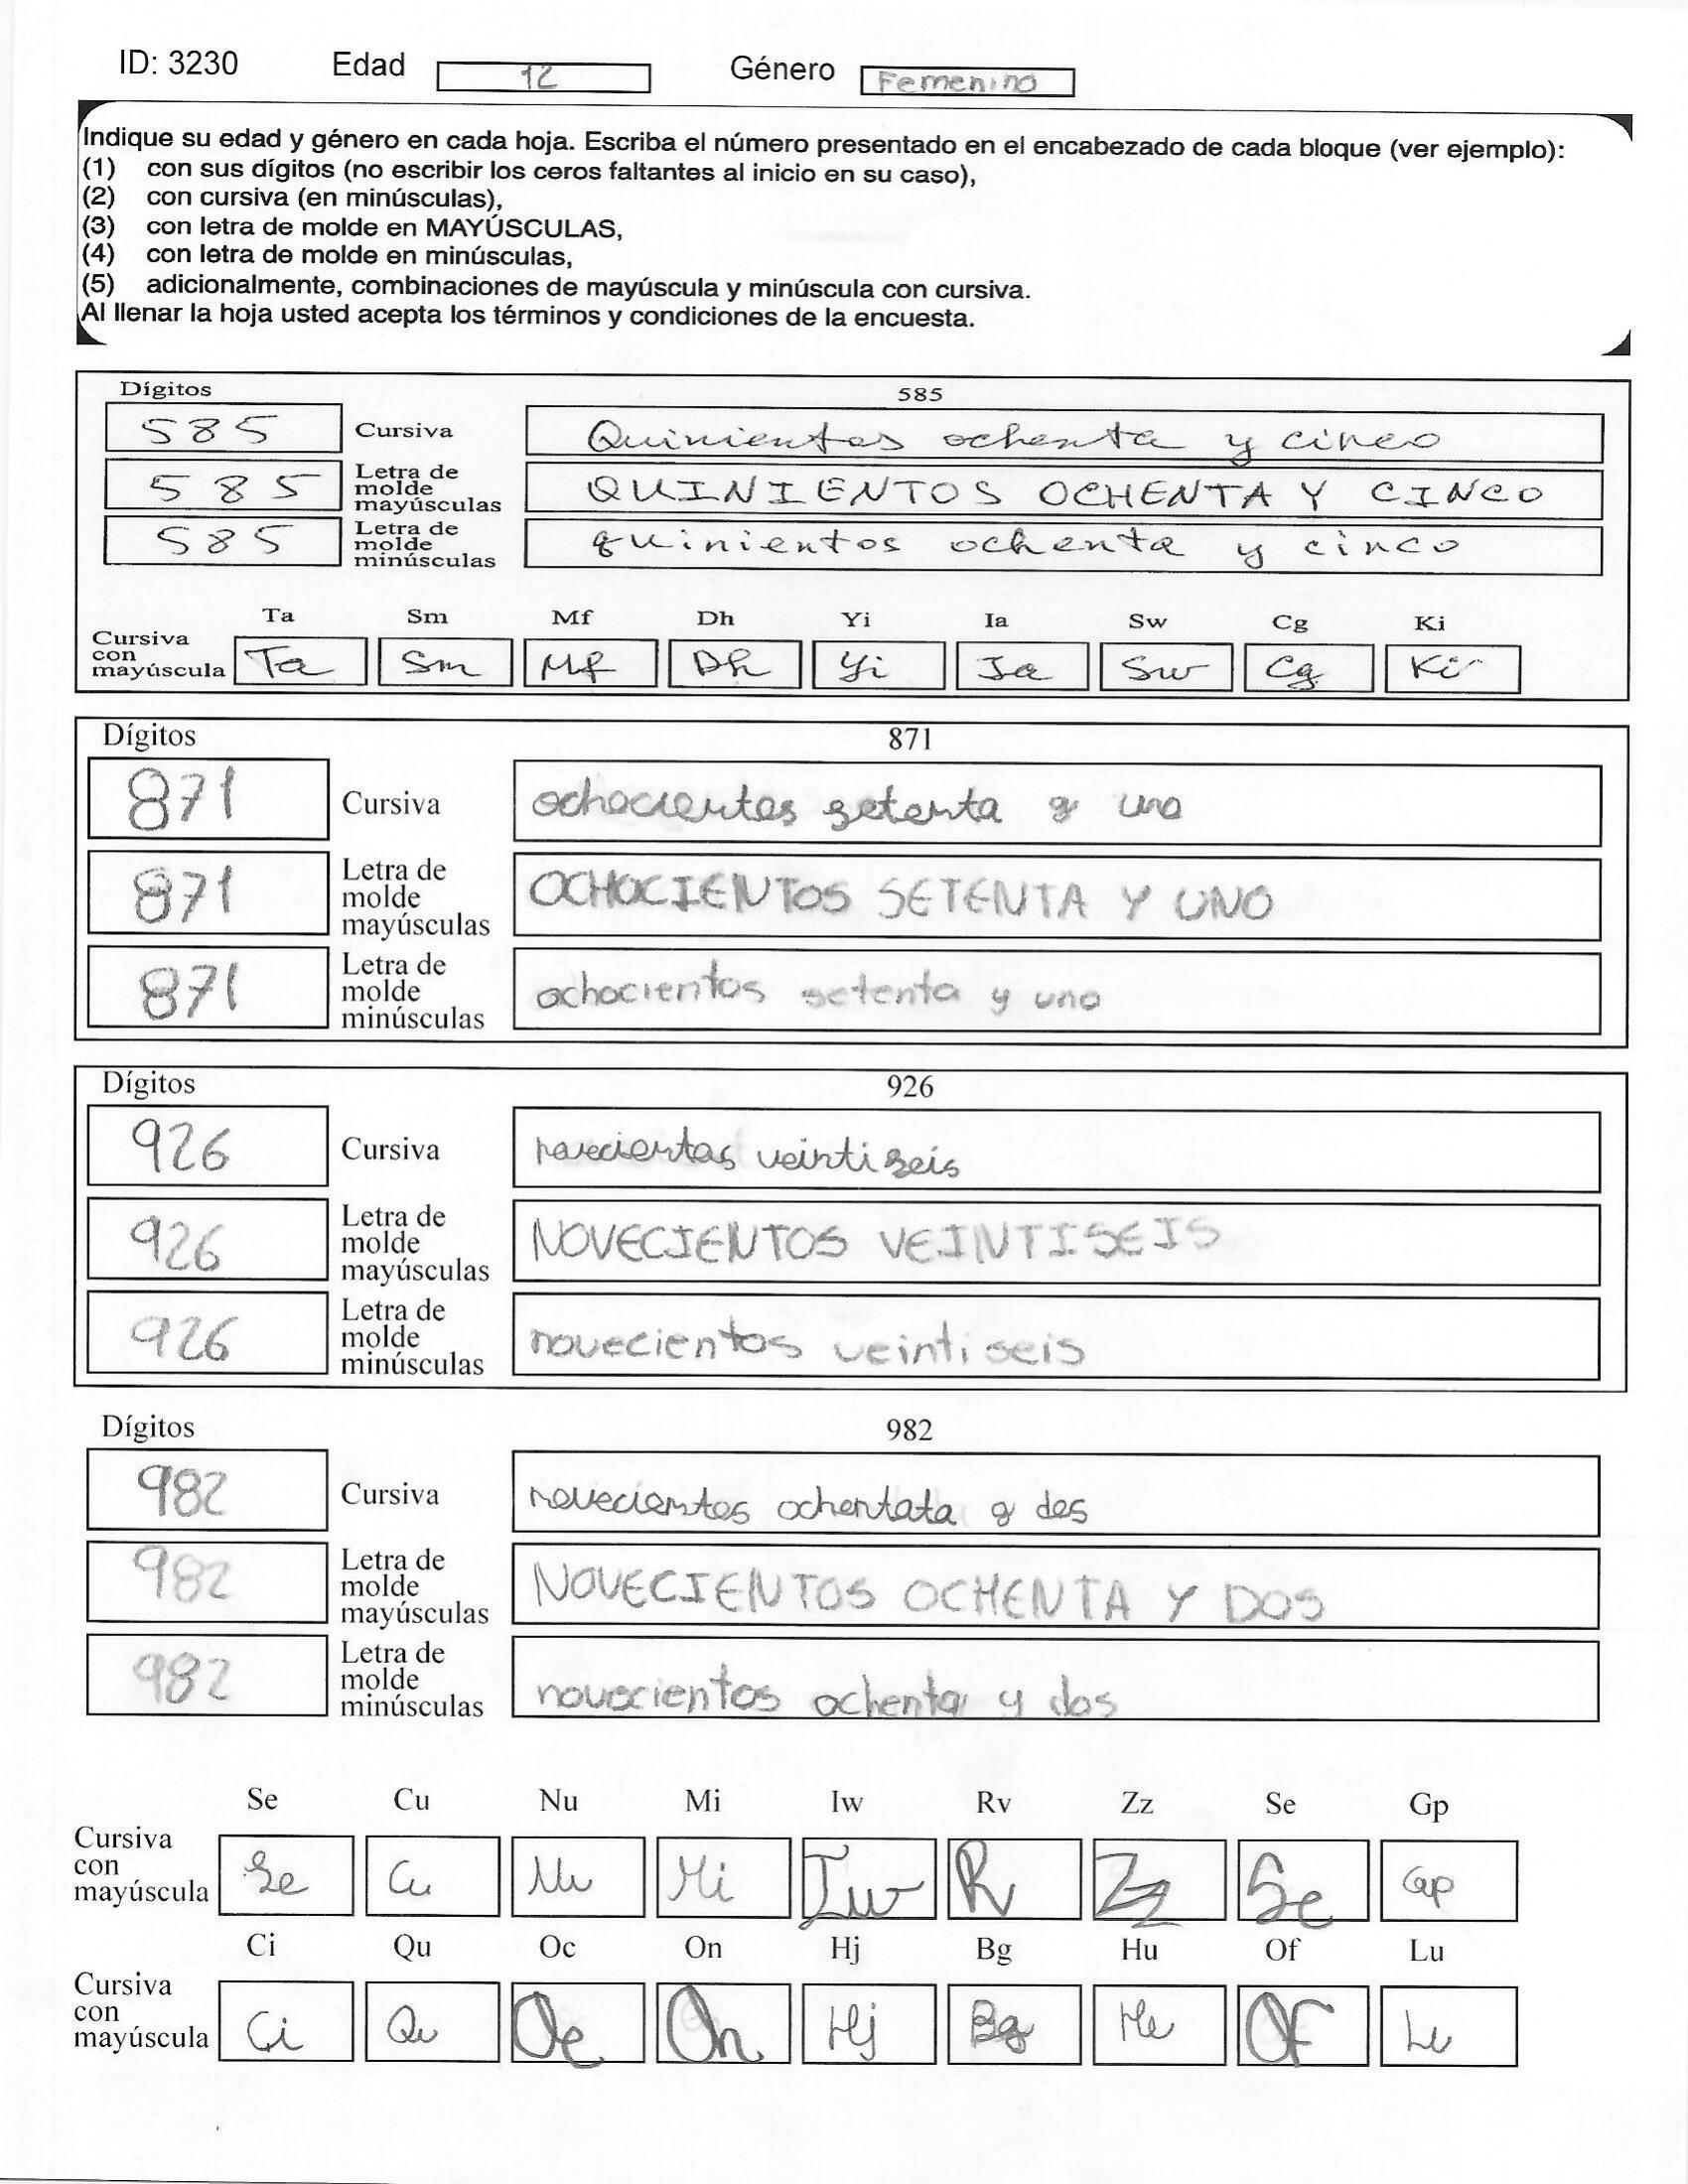 ID: 3230 Edad 12 Género Femenino
Indique su edad y género en cada hoja. Escriba el número presentado en el encabezado de cada bloque (ver ejemplo):
(1) con sus dígitos (no escribir los ceros faltantes al inicio en su caso),
(2) con cursiva (en minúsculas),
(3) con letra de molde en MAYÚSCULAS,
(4) con letra de molde en minúsculas,
(5) adicionalmente, combinaciones de mayúscula y minúscula con cursiva.
Al llenar la hoja usted acepta los términos y condiciones de la encuesta.
Dígitos 585
585 Cursiva Quinientos ochenta y cinco
585 Letra de molde mayúsculas QUINIENTOS OCHENTA Y CINCO
585 Letra de molde minúsculas quinientos ochenta y cinco
Ta Sm Mf Dh Yi Ia Sw Cg Ki
Cursiva con mayúscula Ta Sm Mf Dh Yi Ia Sw Cg Ki
Dígitos 871
871 Cursiva ochocientos setenta y uno
871 Letra de molde mayúsculas OCHOCIENTOS SETENTA Y UNO
871 Letra de molde minúsculas ochocientos setenta y uno
Dígitos 926
926 Cursiva novecientos veintiseis
926 Letra de molde mayúsculas NOVECIENTOS VEINTISEIS
926 Letra de molde minúsculas novecientos veintiseis
Dígitos 982
982 Cursiva novecientos ochentata y dos
982 Letra de molde mayúsculas NOVECIENTOS OCHENTA Y DOS
982 Letra de molde minúsculas novecientos ochenta y dos
Se Cu Nu Mi Iw Rv Zz Se Gp
Cursiva con mayúscula Se Cu Nu Mi Iw Rv Zz Se Gp
Ci Qu Oc On Hj Bg Hu Of Lu
Cursiva con mayúscula Ci Qu Oc On Hj Bg Hu Of Lu